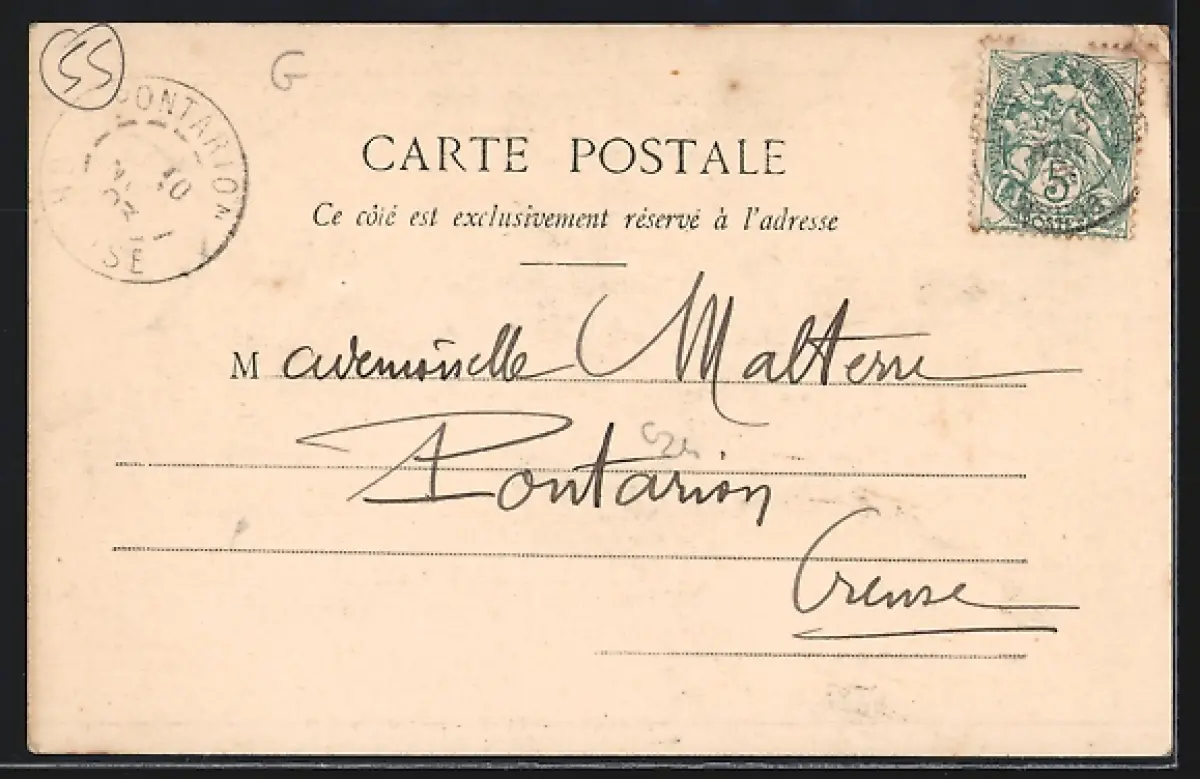 55
G
PONTARION
10
SE
5
POSTES
CARTE POSTALE
Ce côté est exclusivement réservé à l'adresse
Mademoiselle Malterre
Pontarion
Creuse